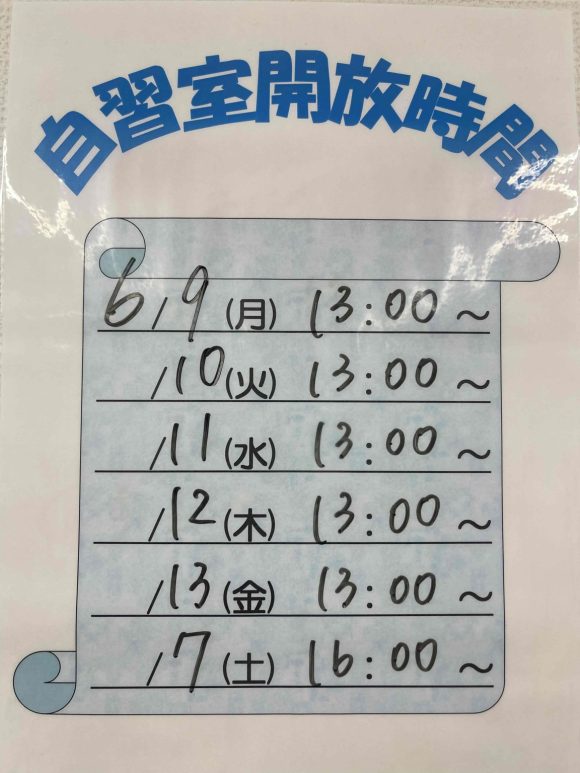 自習室開放時間
6/9(月) 13:00~
/10(火) 13:00~
/11(水) 13:00~
/12(木) 13:00~
/13(金) 13:00~
/7(土) 16:00~